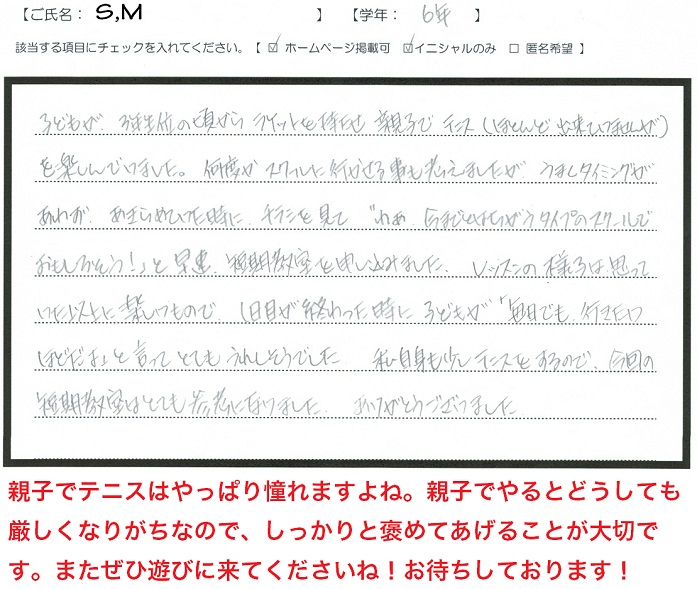 【ご氏名： S,M 】 【学年： 6年 】
該当する項目にチェックを入れてください。【 ☑ ホームページ掲載可 ☑イニシャルのみ □ 匿名希望 】
子どもが、3年生位の頃から ラケットを持たせ 親子で テニス（ほとんど 出来ていませんが）
を楽しんでいました。 何度か スクールに 行かせる事も考えましたが、うまくタイミングが
あわず、あきらめていた時に、チラシを見て "わぁ 今までとはちがうタイプのスクールで
おもしろそう！」と 早速、短期教室を申し込みました。 レッスンの 様子は 思って
いた以上に 楽しいもので、1日目が 終わった時に 子どもが「毎日でも、行きたい
ほどだよ」と 言って とても うれしそうでした。 私自身も少しテニスをするので、今回の
短期教室はとても 参考になりました。 ありがとうございました
親子でテニスはやっぱり憧れますよね。親子でやるとどうしても
厳しくなりがちなので、しっかりと褒めてあげることが大切で
す。またぜひ遊びに来てくださいね！お待ちしております！